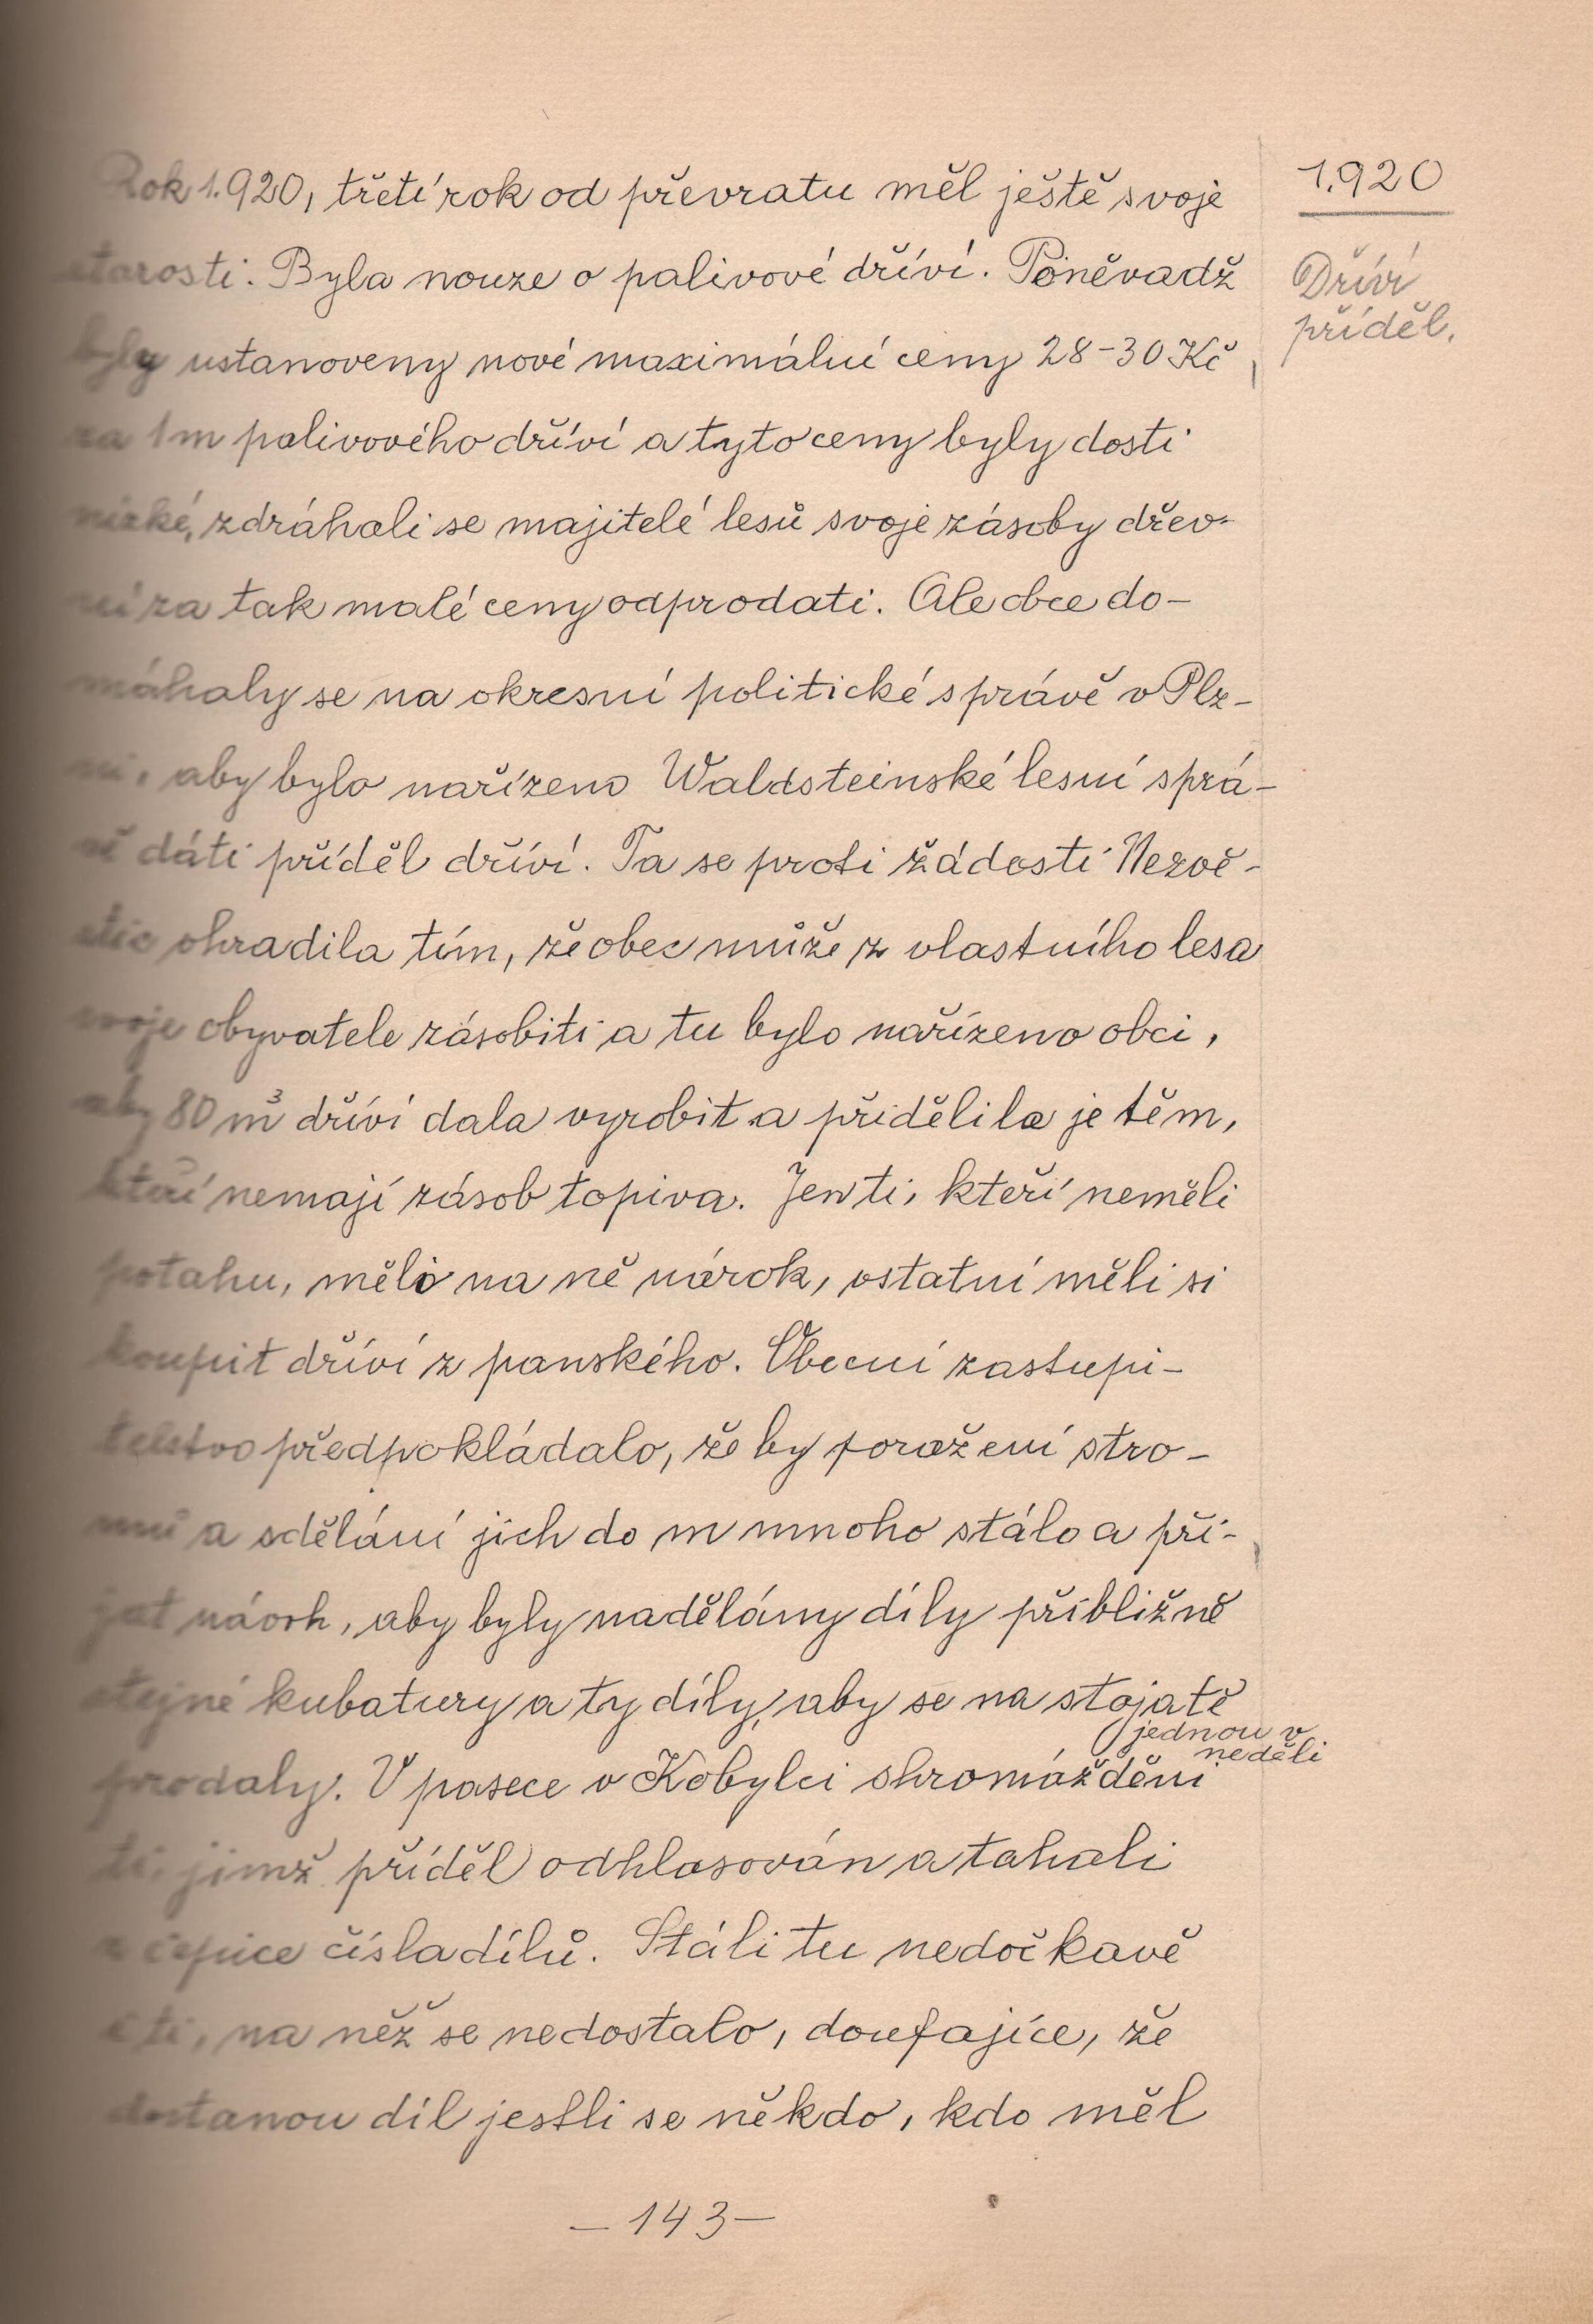 1.920
Dříví
příděl.
Rok 1.920, třetí rok od převratu měl ještě svoje
starosti. Byla nouze o palivové dříví. Poněvadž
byly ustanoveny nové maximální ceny 28-30 Kč
za 1m palivového dříví a tyto ceny byly dosti
nízké, zdráhali se majitelé lesů svoje zásoby dřev-
ní za tak malé ceny odprodati. Ale obce do-
máhaly se na okresní politické správě v Plz-
ni, aby bylo nařízeno Waldsteinské lesní sprá-
vě dáti příděl dříví. Ta se proti žádosti Nezvě-
stic ohradila tím, že obec může z vlastního lesa
svoje obyvatele zásobiti a tu bylo nařízeno obci,
aby 80 m³ dříví dala vyrobit a přidělila je těm,
kteří nemají zásob topiva. Jen ti, kteří neměli
potahu, měli na ně nárok, ostatní měli si
koupit dříví z panského. Obecní zastupi-
telstvo předpokládalo, že by poražení stro-
mů a sdělání jich do m mnoho stálo a při-
jat návrh, aby byly nadělány díly přibližně
stejné kubatury a ty díly, aby se na stojatě
prodaly. V pasece v Kobylci shromážděni (jednou v
neděli
ti, jimž příděl odhlasován a tahali
z čepice čísla dílů. Stáli tu nedočkavě
i ti, na něž se nedostalo, doufajíce, že
dostanou díl jestli se někdo, kdo měl
-143-